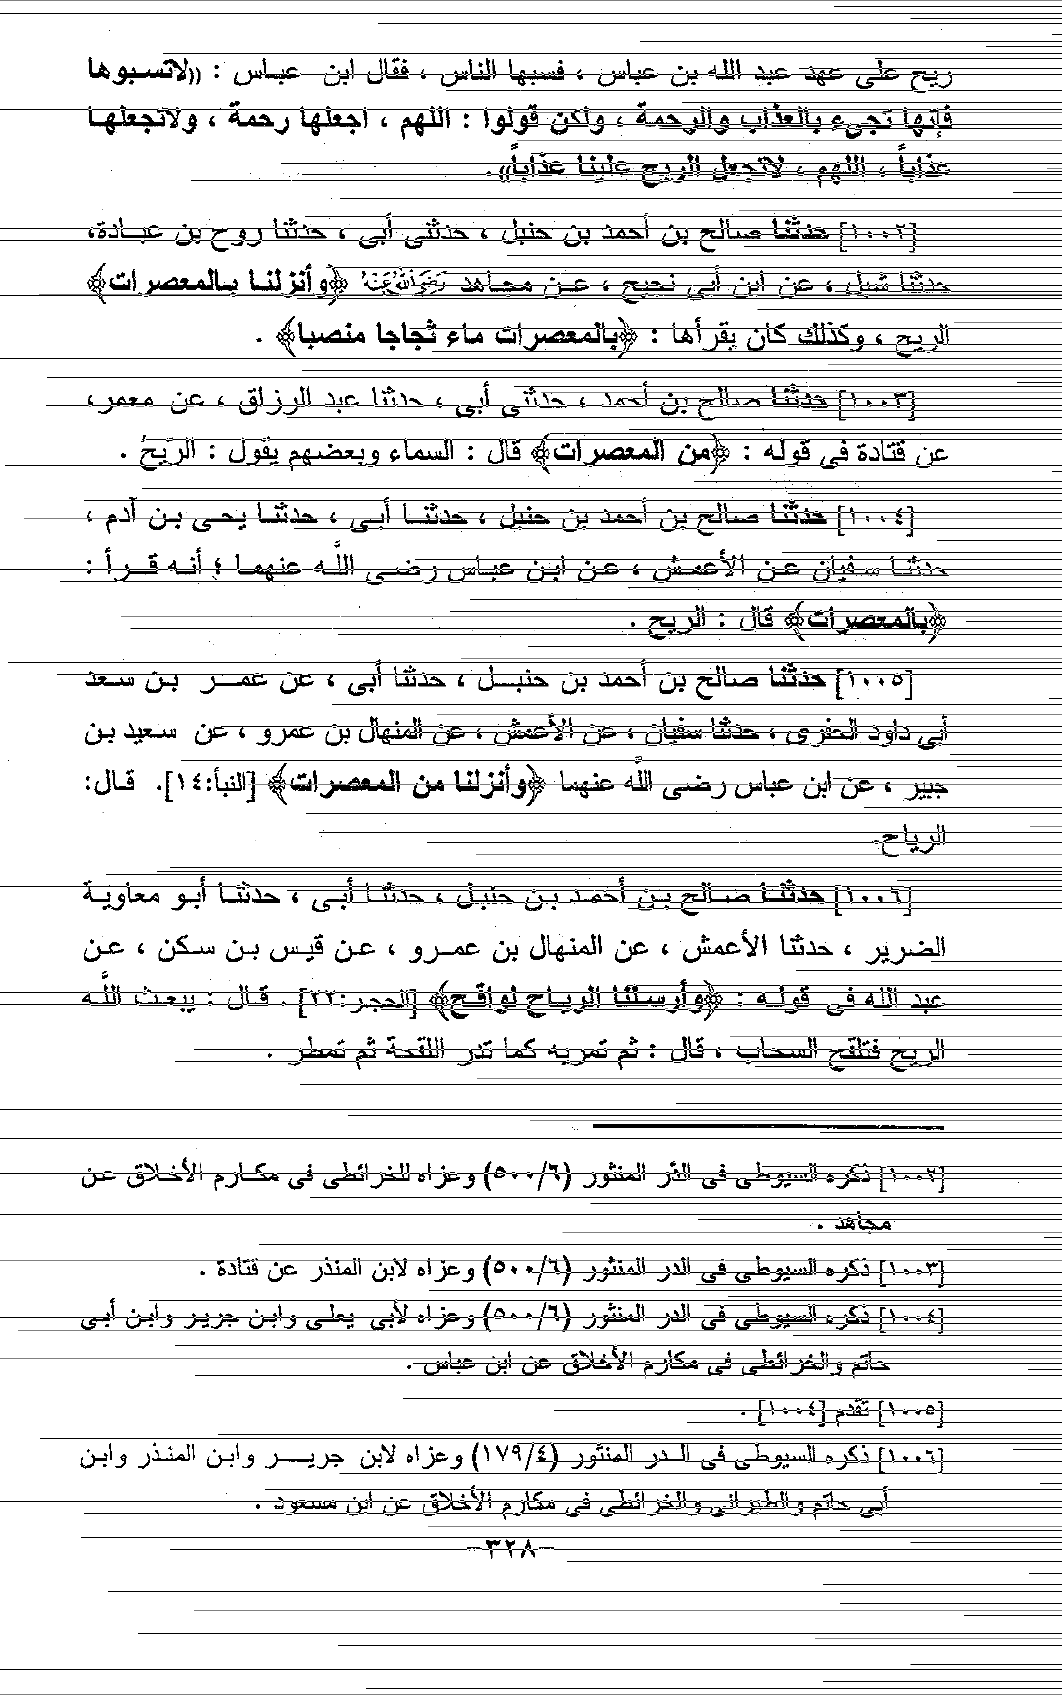 ريح على عهد عبد الله بن عباس ، فسبها الناس ، فقال ابن عباس : ((لاتسبوها
فإنها تجىء بالعذاب والرحمة ، ولكن قولوا : اللهم ، اجعلها رحمة ، ولاتجعلها
عذاباً ، اللهم ، لاتجعل الريح علينا عذاباً)) .
[١٠٠٢] حدثنا صالح بن أحمد بن حنبل ، حدثنى أبى ، حدثنا روح بن عبادة،
حدثنا شبل ، عن ابن أبي نجيح ، عن مجاهد رضي الله عنه ﴿وأنزلنا بالمعصرات﴾
الريح ، وكذلك كان يقرأها : ﴿بالمعصرات ماء ثجاجا منصبا﴾ .
[١٠٠٣] حدثنا صالح بن أحمد ، حدثنى أبى ، حدثنا عبد الرزاق ، عن معمر،
عن قتادة فى قوله : ﴿من المعصرات﴾ قال : السماء وبعضهم يقول : الرّيحُ .
[١٠٠٤] حدثنا صالح بن أحمد بن حنبل ، حدثنا أبى ، حدثنا يحى بن آدم ،
حدثنا سفيان عن الأعمش ، عن ابن عباس رضى اللَّه عنهما ؛ أنه قرأ :
﴿بالمعصرات﴾ قال : الريح .
[١٠٠٥] حدثنا صالح بن أحمد بن حنبل ، حدثنا أبى ، عن عمر بن سعد
أبي داود الحفرى ، حدثنا سفيان ، عن الأعمش ، عن المنهال بن عمرو ، عن سعيد بن
جبير ، عن ابن عباس رضى اللَّه عنهما ﴿وأنزلنا من المعصرات﴾ [النبأ:١٤]. قال:
الرياح.
[١٠٠٦] حدثنا صالح بن أحمد بن حنبل ، حدثنا أبى ، حدثنا أبو معاوية
الضرير ، حدثنا الأعمش ، عن المنهال بن عمرو ، عن قيس بن سكن ، عن
عبد الله فى قوله : ﴿وأرسلنا الرياح لواقح﴾ [الحجر:٢٢] . قال : يبعث اللَّه
الريح فتلقح السحاب ، قال : ثم تمريه كما تدر اللقحة ثم تمطر .
[١٠٠٢] ذكره السيوطى فى الدر المنثور (٥٠٠/٦) وعزاه للخرائطى فى مكارم الأخلاق عن
مجاهد .
[١٠٠٣] ذكره السيوطى فى الدر المنثور (٥٠٠/٦) وعزاه لابن المنذر عن قتادة .
[١٠٠٤] ذكره السيوطى فى الدر المنثور (٥٠٠/٦) وعزاه لأبى يعلى وابن جرير وابن أبى
حاتم والخرائطى فى مكارم الأخلاق عن ابن عباس .
[١٠٠٥] تقدم [١٠٠٤] .
[١٠٠٦] ذكره السيوطى فى الدر المنثور (١٧٩/٤) وعزاه لابن جرير وابن المنذر وابن
أبي حاتم والطبرانى والخرائطى فى مكارم الأخلاق عن ابن مسعود .
-٣٢٨-